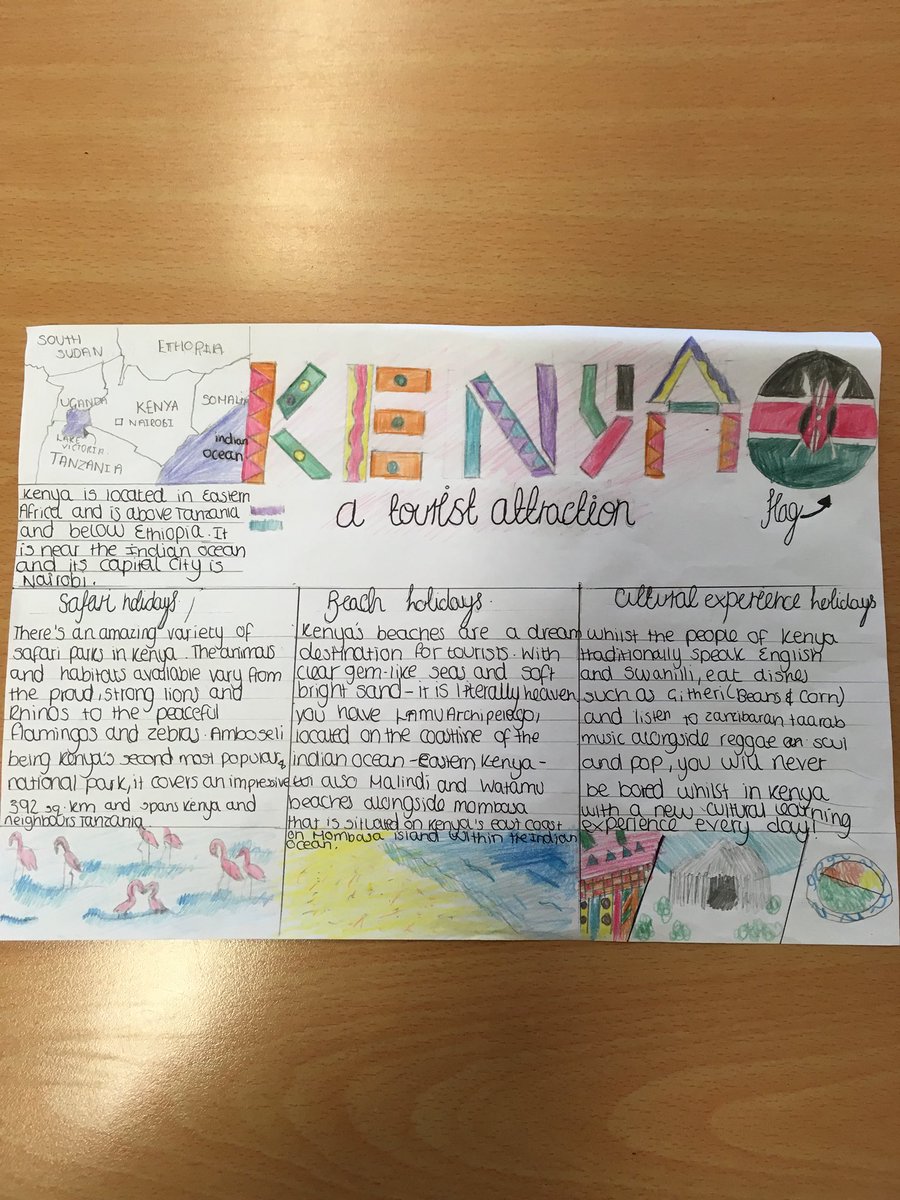 SOUTH
SUDAN
ETHOPIA
UGANDA
KENYA
NAIROBI
SOMALIA
LAKE
VICTORIA.
TANZANIA
indian
ocean
KENYA
a tourist attraction
flag
Kenya is located in Eastern
Africa and is above Tanzania
and below Ethiopia. It
is near the Indian ocean
and its capital city is
Nairobi.
Safari holidays
There's an amazing variety of
safari parks in Kenya. The animals
and habitats available vary from
the proud, strong lions and
Rhinos to the peaceful
flamingos and zebras. Amboseli
being Kenya's second most popular
national park, it covers an impressive
392 sq. km and spans Kenya and
neighbours Tanzania.
Beach holidays.
Kenya's beaches are a dream
destination for tourists. With
clear gem-like seas and soft
bright sand - it is literally heaven
you have Lamu Archipelego,
located on the coastline of the
indian ocean - eastern Kenya -
but also Malindi and Watamu
beaches alongside mombasa
that is situated on Kenya's east coast
on Mombasa island within the Indian
ocean.
Cultural experience holidays
whilst the people of Kenya
traditionally speak English
and Swahili, eat dishes
such as Githeri (Beans & Corn)
and listen to zanzibaran taarab
music alongside reggae soul
and pop, you will never
be bored whilst in Kenya
with a new cultural learning
experience every day!